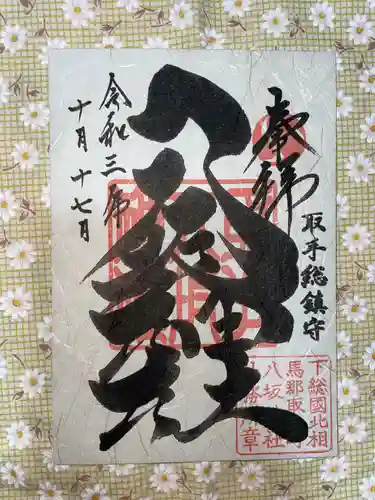 奉拝
取手総鎮守
八坂神社
令和三年
十月十七日
下総國北相
馬郡取
八坂
社
章